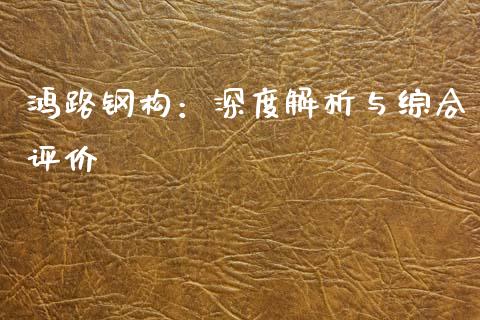 鸿路钢构：深度解析与综合
评价